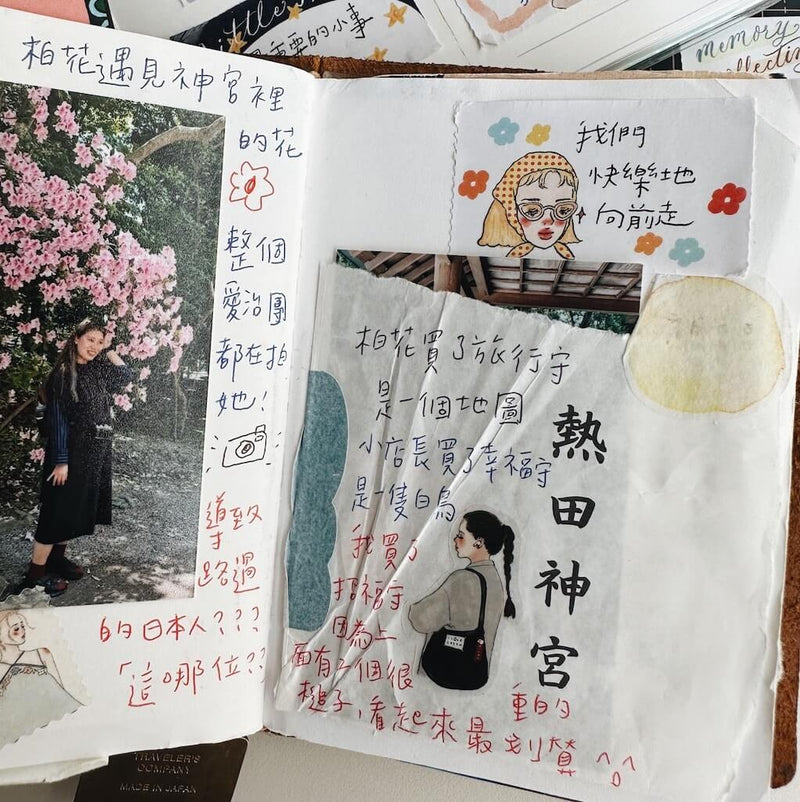 重要的小事
memory
collecting
柏花遇見神宮裡
的花
整個
愛治團
都在拍
她！
導致
路過
的日本人？？？
「這哪位？？
我們
快樂地
向前走
柏花買了旅行守
是一個地圖
小店長買了幸福守
是一隻白鳥
我買了
招福守
因為上
面有一個很
重的
槌子，看起來最划算 ^o^
熱田神宮
TRAVELER'S
COMPANY
MADE IN JAPAN